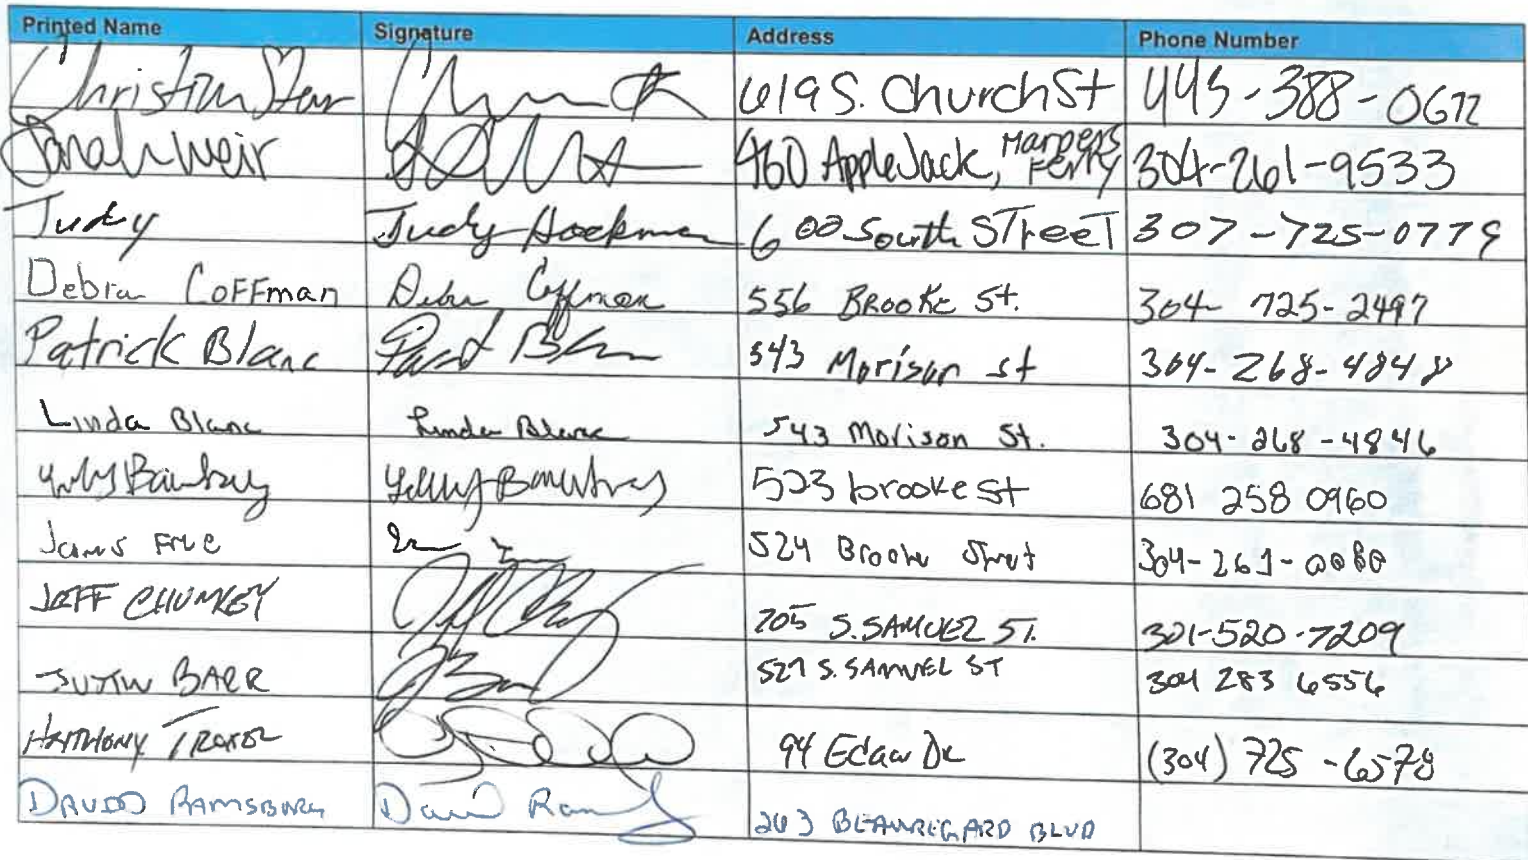 Printed Name Signature Address Phone Number
Christian Starr 619 S. Church St 443-388-0672
Sarah Weir 460 AppleJack, Harpers Ferry 304-261-9533
Judy Judy Hockman 600 South STreeT 307-725-0779
Debra CoFFman Debra Coffman 556 BRooKe St. 304-725-2497
Patrick Blanc 543 Morison st 304-268-4848
Linda Blanc Linda Blanc 543 Morison St. 304-268-4846
523 brooke st 681 258 0960
524 Brooke Street 304-261-0080
JEFF CHUMLEY 205 S. SAMUEL ST. 301-520-7209
JUSTIN BARR 527 S. SAMUEL ST 304 283 6556
ANTHONY TROXEL 94 Edaw Dr (304) 725-6578
DAVID RAMSBURG David 263 BEAUREGARD BLVD